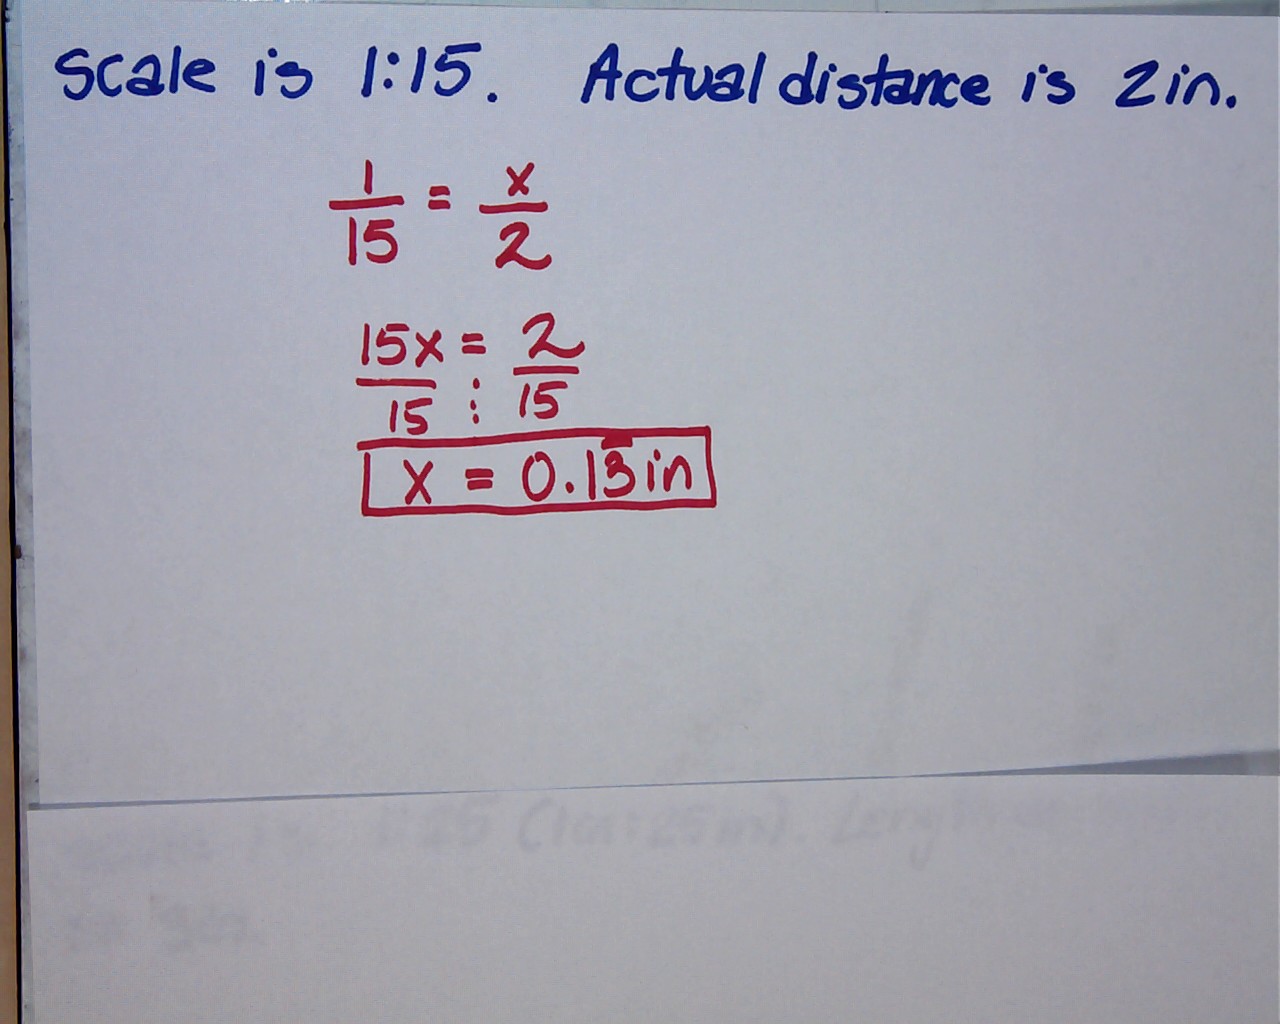 Scale is 1:15. Actual distance is 2in.
1/15 = x/2
15x/15 = 2/15
x = 0.13̅ in
1:25 (1in:25in). Length